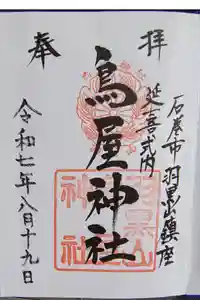 奉拝
石巻市羽黒山鎮座
延喜式内
鳥屋神社
羽黒山
神社
令和七年八月十九日